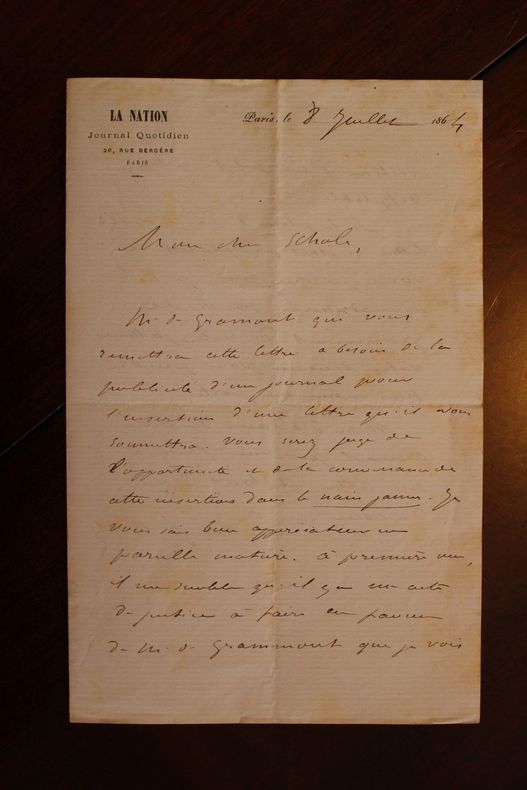 LA NATION
Journal Quotidien
20, RUE BERGÈRE
PARIS
Paris, le 8 Juillet 1864
Mon cher Scholl,
M. de Gramont qui vous
remettra cette lettre a besoin de la
publicité d'un journal pour
l'insertion d'une lettre qu'il vous
soumettra. Vous serez juge de
l'opportunité et de la convenance de
cette insertion dans le nain jaune. Je
vous sais bon appréciateur en
pareille matière. à première vue,
il me semble qu'il y a un acte
de justice à faire en faveur
de M. de Grammont que je vois